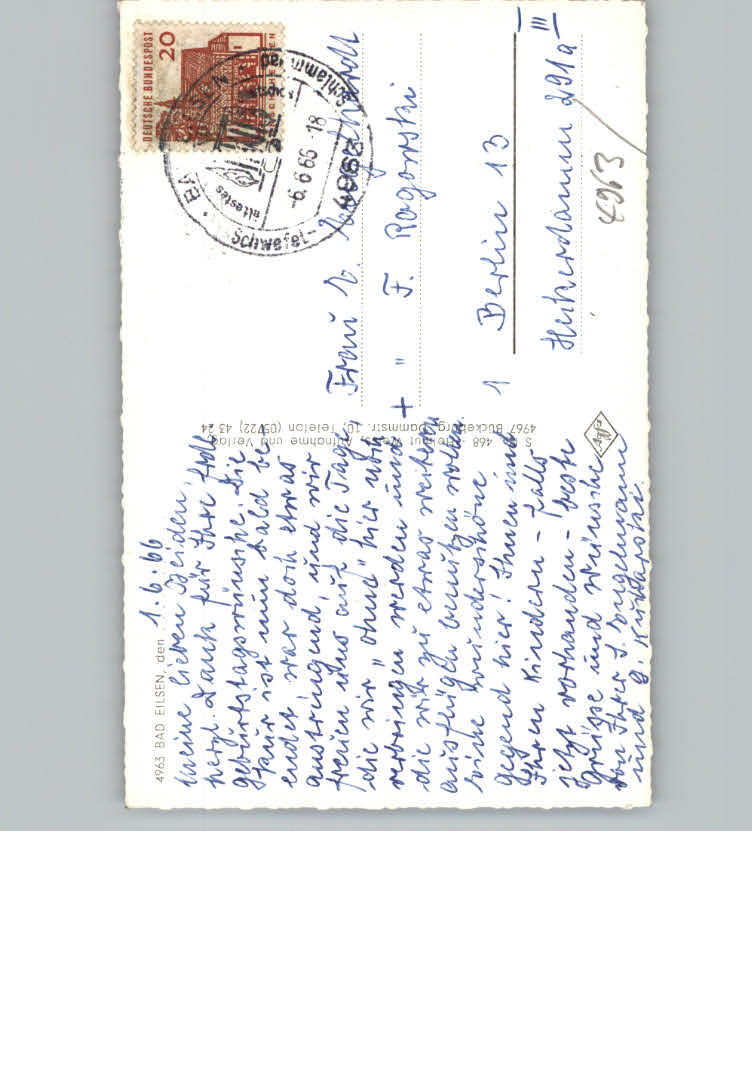 4963 BAD EILSEN, den 1.6.66
Meine lieben Beiden,
herzl. Dank für Ihre
Geburtstagswünsche. Die
Kur ist nun bald be
endet war doch etwas
anstrengend, und wir
freuen uns auf die Tage,
die wir "ohne" hier noch
verbringen werden und
die wir zu etwas weiteren
Ausflügen benutzen wollen.
Eine wunderschöne
Gegend hier! Ihnen und
Ihren Kindern - falls
jetzt vorhanden - beste
Grüsse und Wünsche
von Ihrer J. Engelmann
und
DEUTSCHE BUNDESPOST
20
4963 BA
ältestes
-6.6.66-18
Schwefel-
Schlammbad
Frau
+ " F. Rogowski
1 Berlin 13
Heckerdamm 291a III
4963
S 468 - Helmut Weiss, Aufnahme und Verlag
4967 Bückeburg, Dammstr. 10, Telefon (05722) 43 24
Agfa